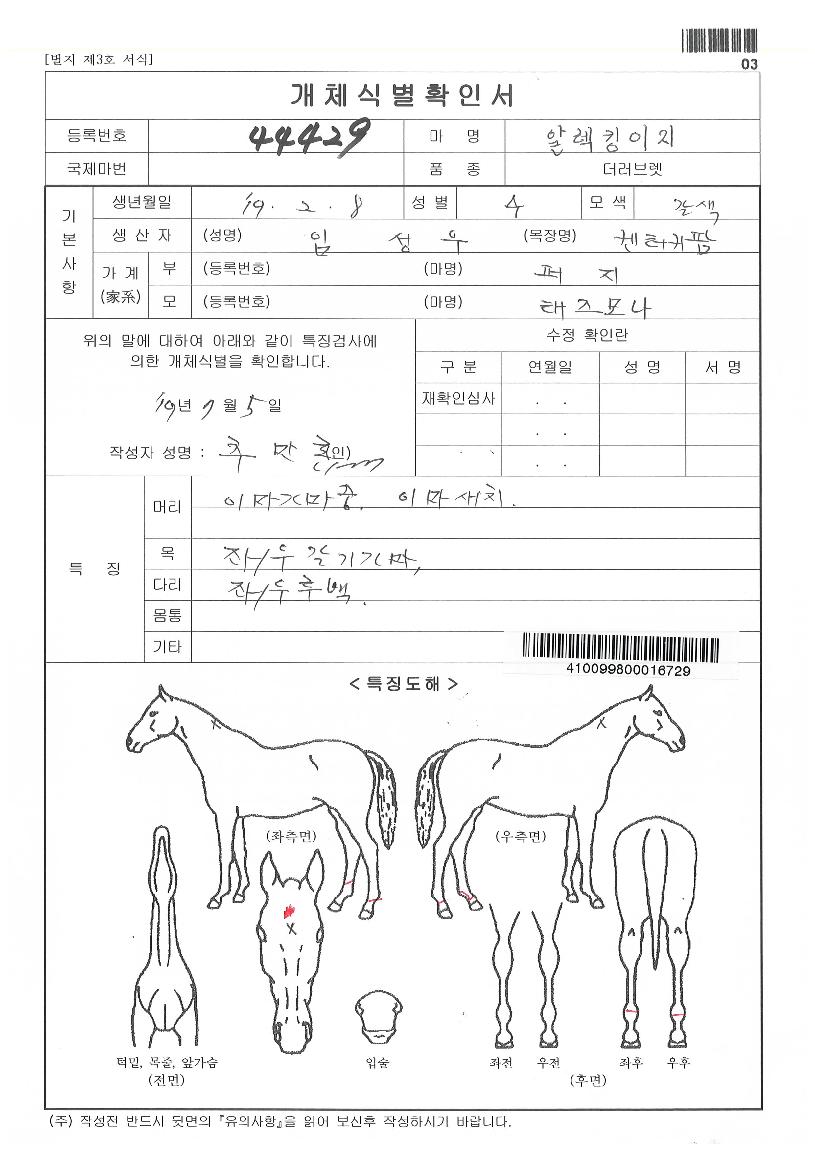 03
[별지 제3호 서식]
개체식별확인서
등록번호 44429 마 명 알렉킹이지
국제마번 품 종 더러브렛
기본사항
생년월일 '19. 2. 8 성 별 수 모 색 갈색
생 산 자 (성명) 임 성 우 (목장명) 켄터키팜
가 계 (家系) 부 (등록번호) (마명) 퍼 지
모 (등록번호) (마명) 태즈모나
위의 말에 대하여 아래와 같이 특징검사에
의한 개체식별을 확인합니다.
'19년 7월 5일
작성자 성명 : 추 만 (인)
수정 확인란
구 분 연월일 성 명 서 명
재확인심사 . .
. .
. .
특 징
머리 이마가마중, 이마새치.
목 좌/우 갈기가마,
다리 좌/우후백.
몸통
기타
410099800016729
< 특징도해 >
(좌측면) (우측면)
턱밑, 목줄, 앞가슴 입술 좌전 우전 좌후 우후
(전면) (후면)
(주) 작성전 반드시 뒷면의 『유의사항』을 읽어 보신후 작성하시기 바랍니다.